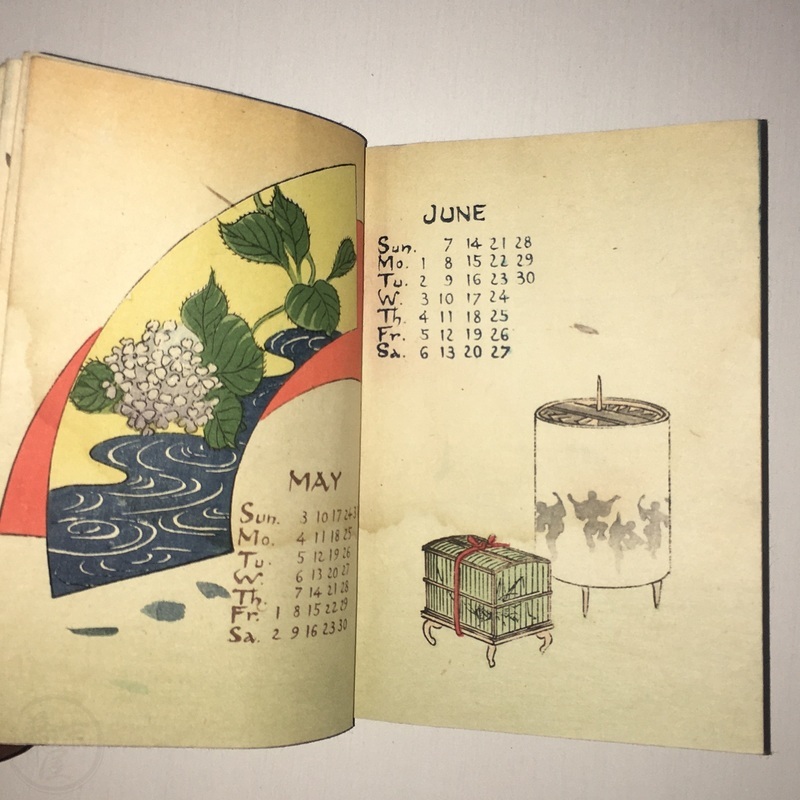 MAY
Sun. 3 10 17 24 3
Mo. 4 11 18 25
Tu. 5 12 19 26
W. 6 13 20 27
Th. 7 14 21 28
Fr. 1 8 15 22 29
Sa. 2 9 16 23 30
JUNE
Sun. 7 14 21 28
Mo. 1 8 15 22 29
Tu. 2 9 16 23 30
W. 3 10 17 24
Th. 4 11 18 25
Fr. 5 12 19 26
Sa. 6 13 20 27